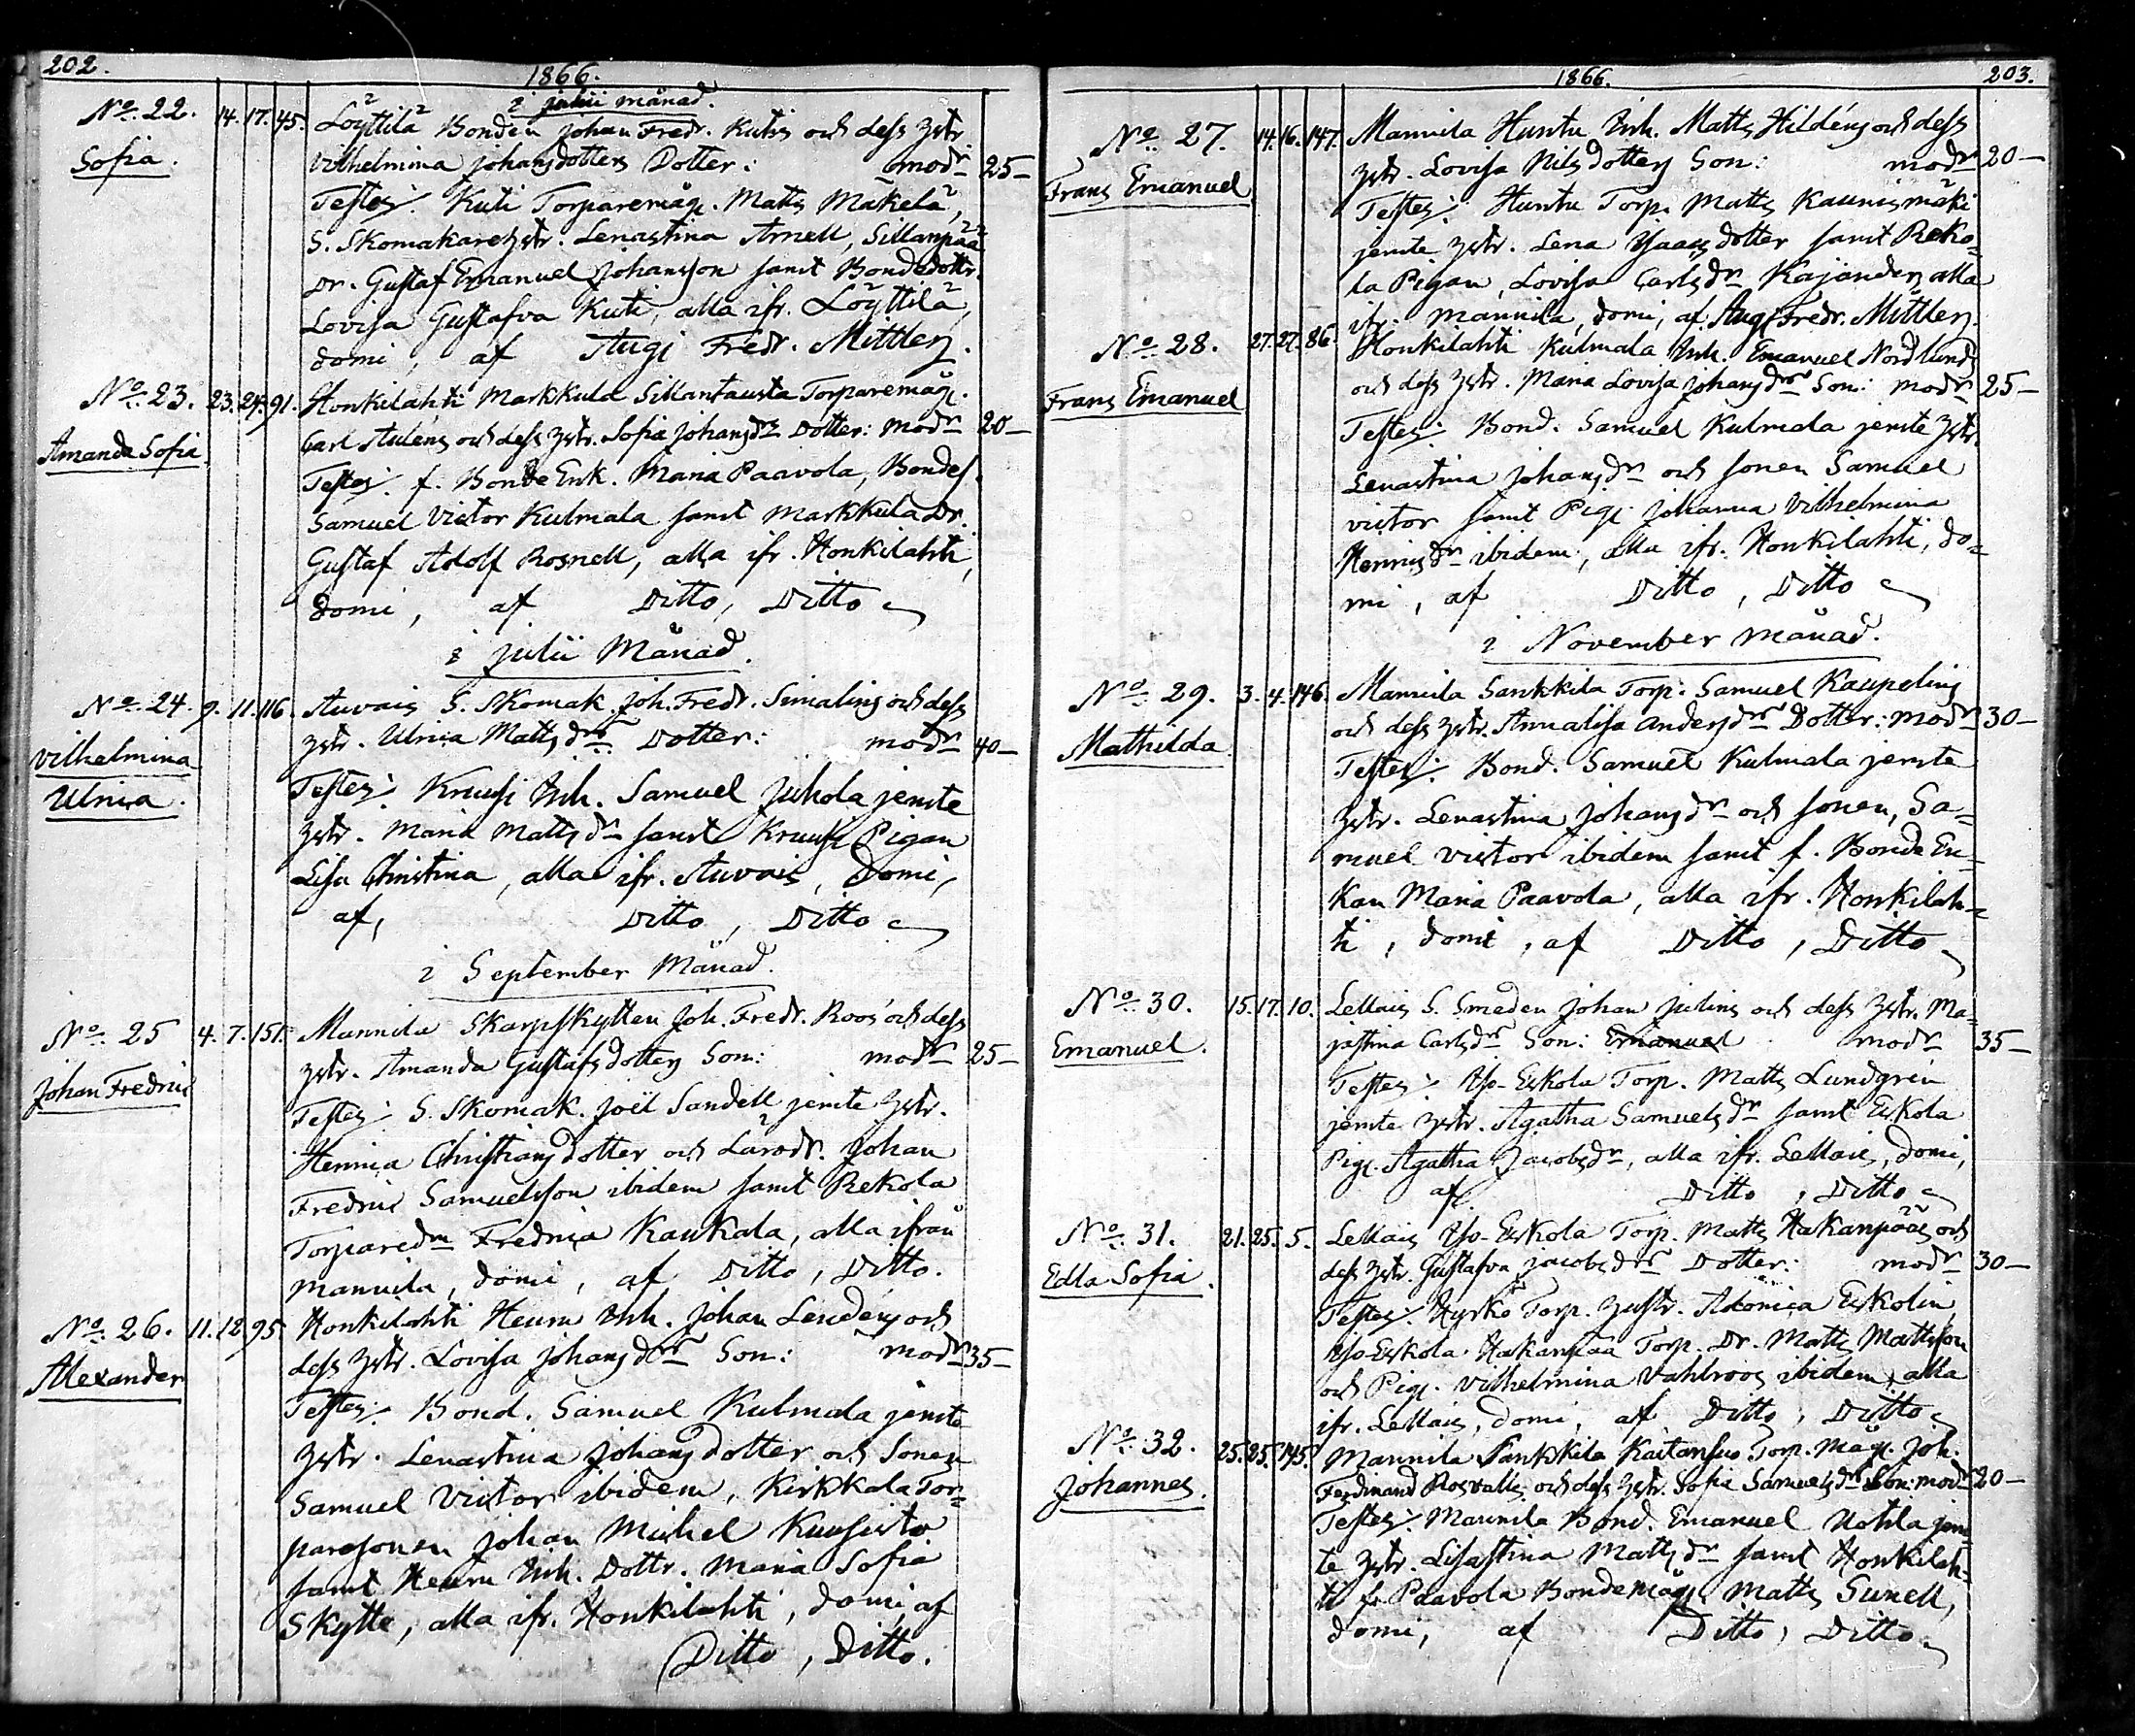 202.
1866.
i julii månad.
No. 22. 14. 17. 45. Löyttilä Bonden Johan Fredr. Kutis och dess hstr
Sofia. Vilhelmina Johansdotters Dotter: modr 25—
Testes: Kuti Torparemåg. Matts Mäkelä,
S. Skomakarehstr. Lenastina Arnell, Sillanpää
Dr. Gustaf Emanuel Johansson samt Bondedottr.
Lovisa Gustafva Kuti, alla ifr. Löyttilä,
domi, af Aug: Fredr. Mittler.
No. 23. 23. 24. 91. Honkilahti Markkula Sillantausta Torparemåg.
Amanda Sofia Carl Auléns och dess hstr. Sofia Johansdrs Dotter: modr 20—
Testes: f. Bonde Enk. Maria Paavola, Bondes.
Samuel Victor Kulmala samt Markkula Dr.
Gustaf Adolf Rosnell, alla ifr. Honkilahti,
domi, af Ditto, Ditto
i julii Månad.
No. 24. 9. 11. 116. Auvais S. Skomak. Joh. Fredr. Simalins och dess
Vilhelmina hstr. Ulrica Mattsdrs Dotter: modr 40—
Ulrica. Testes: Kruusi Inh. Samuel Juhola jemte
hstr. Maria Mattsdr samt Kruusi Pigan
Lisa Christina, alla ifr. Auvais, Domi,
af, Ditto, Ditto
i September Månad.
No. 25 4. 7. 151. Mannila Skarpskytten Joh. Fredr. Roos' och dess
Johan Fredric hstr. Amanda Gustafsdotters Son: modr 25—
Testes: S. Skomak. Joël Sandell jemte hstr.
Henrica Christiansdotter och Lärodr. Johan
Fredric Samuelsson ibidem samt Rekola
Torparedm Fredrica Kaukala, alla ifrån
Mannila, domi, af Ditto, Ditto.
No. 26. 11. 12. 95. Honkilahti Heurn Inh. Johan Lindéns och
Alexander dess hstr. Lovisa Johansdrs Son: modr 35—
Testes: Bond. Samuel Kulmala jemte
hstr. Lenastina Johansdotter och Sonen
Samuel Victor ibidem, Kirkkala Tor=
paresonen Johan Michel Kuusisto
samt Heurn Inh. Dottr. Maria Sofia
Skytte, alla ifr. Honkilahti, domi, af
Ditto, Ditto.
1866.
203.
No. 27. 14. 16. 147. Mannila Huntu Inh. Matts Hildéns och dess
Frans Emanuel hstr. Lovisa Nilsdotters Son: modr 20—
Testes: Huntu Torp. Matts Kaunismäki
jemte hstr. Lena Isaacsdotter samt Reko=
la Pigan, Lovisa Carlsdr Kajander, alla
ifr. Mannila, domi, af Aug: Fredr. Mittler.
No. 28. 27. 27. 86. Honkilahti Kulmala Inh. Emanuel Nordlunds
Frans Emanuel och dess hstr. Maria Lovisa Johansdrs Son: modr 25—
Testes: Bond. Samuel Kulmala jemte hstr.
Lenastina Johansdr och sonen Samuel
Victor samt Pig: Johanna Vilhelmina
Henricsdr ibidem, alla ifr. Honkilahti, do=
mi, af Ditto, Ditto
i November månad.
No. 29. 3. 4. 146. Mannila Sankkila Torp. Samuel Kaupelins
Mathilda. och dess hstr. Annalisa Andersdrs Dotter: modr 30—
Testes: Bond. Samuel Kulmala jemte
hstr. Lenastina Johansdr och sonen, Sa=
muel Victor ibidem samt f. Bonde En=
kan Maria Paavola, alla ifr. Honkilah=
ti, domi, af Ditto, Ditto
No. 30. 15. 17. 10. Lellais S. Smeden Johan Julins och dess hstr. Ma=
Emanuel. jastina Carlsdrs Son: Emanuel modr 35—
Testes: Iso-Eskola Torp. Matts Lundgrén
jemte hstr. Agatha Samuelsdr samt Eskola
Pig. Agatha Jacobsdr, alla ifr. Lellais, domi,
af Ditto, Ditto
No. 31. 21. 25. 5. Lellais Iso-Eskola Torp. Matts Hakanpääs och
Edla Sofia. dess hstr. Gustafva Jacobsdrs Dotter: modr 30—
Testes: Hyrkö Torp. hustr. Adonica Eskolin
Iso-Eskola Hakanpää Torp. Dr. Matts Mattsson
och Pig. Vilhelmina Vahlroos ibidem, alla
ifr. Lellais, domi, af Ditto, Ditto
No. 32. 25. 25. 145. Mannila Sankkila Kaitansuo Torp. måg. Joh.
Johannes. Ferdinand Rosvalls och dess hstr. Sofia Samuelsdrs Son: modr 20—
Testes: Mannila Bond. Emanuel Uotila jem=
te hstr. Lisastina Mattsdr samt Honkilah=
ti f. Paavola Bondemåg. Matts Sunell,
domi, af Ditto, Ditto